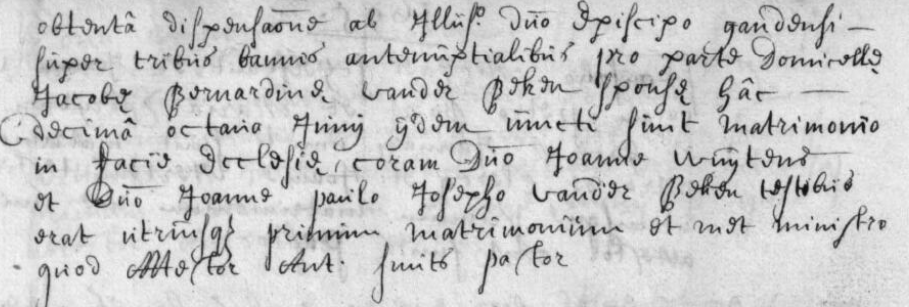 obtentâ dispensaõne ab Illusᵒ. Dño Episcipo gandensi —
super tribus bannis antenuptialibus pro parte Domicellę
Jacobę Bernardinę vander Beken sponsę hâc —
decimâ octava Junij ijdem iuncti sunt matrimonio
in facie Ecclesię, coram Dño Joanne wuÿtens
et Dño Joanne paulo Josepho vander Beken testibus
erat utriusqʒ primum matrimonium et met ministro
quod Attestor Ant. smits pastor